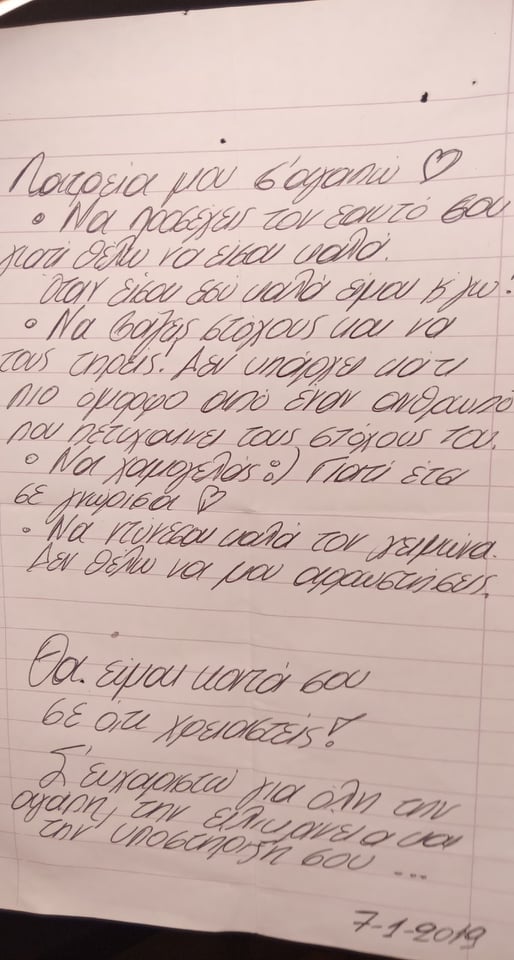 Πατρεία μου σ'αγαπώ ♡
• Να προσέχεις τον εαυτό σου
γιατί θέλω να είσαι καλά.
Όταν είσαι εσύ καλά είμαι κ'γω!
• Να βάζεις στόχους και να
τους τηρείς! Δεν υπάρχει κάτι
πιο όμορφο από έναν άνθρωπο
που πετυχαίνει τους στόχους του.
• Να χαμογελάς :) Γιατί έτσι
σε γνώρισα ♡
• Να ντύνεσαι καλά τον χειμώνα.
Δεν θέλω να μου αρρωστήσεις.
Θα είμαι κοντά σου
σε ότι χρειαστείς!
Σ'ευχαριστώ για όλη την
αγάπη, την ειλικρίνεια και
την υποστήριξη σου ...
7-1-2019